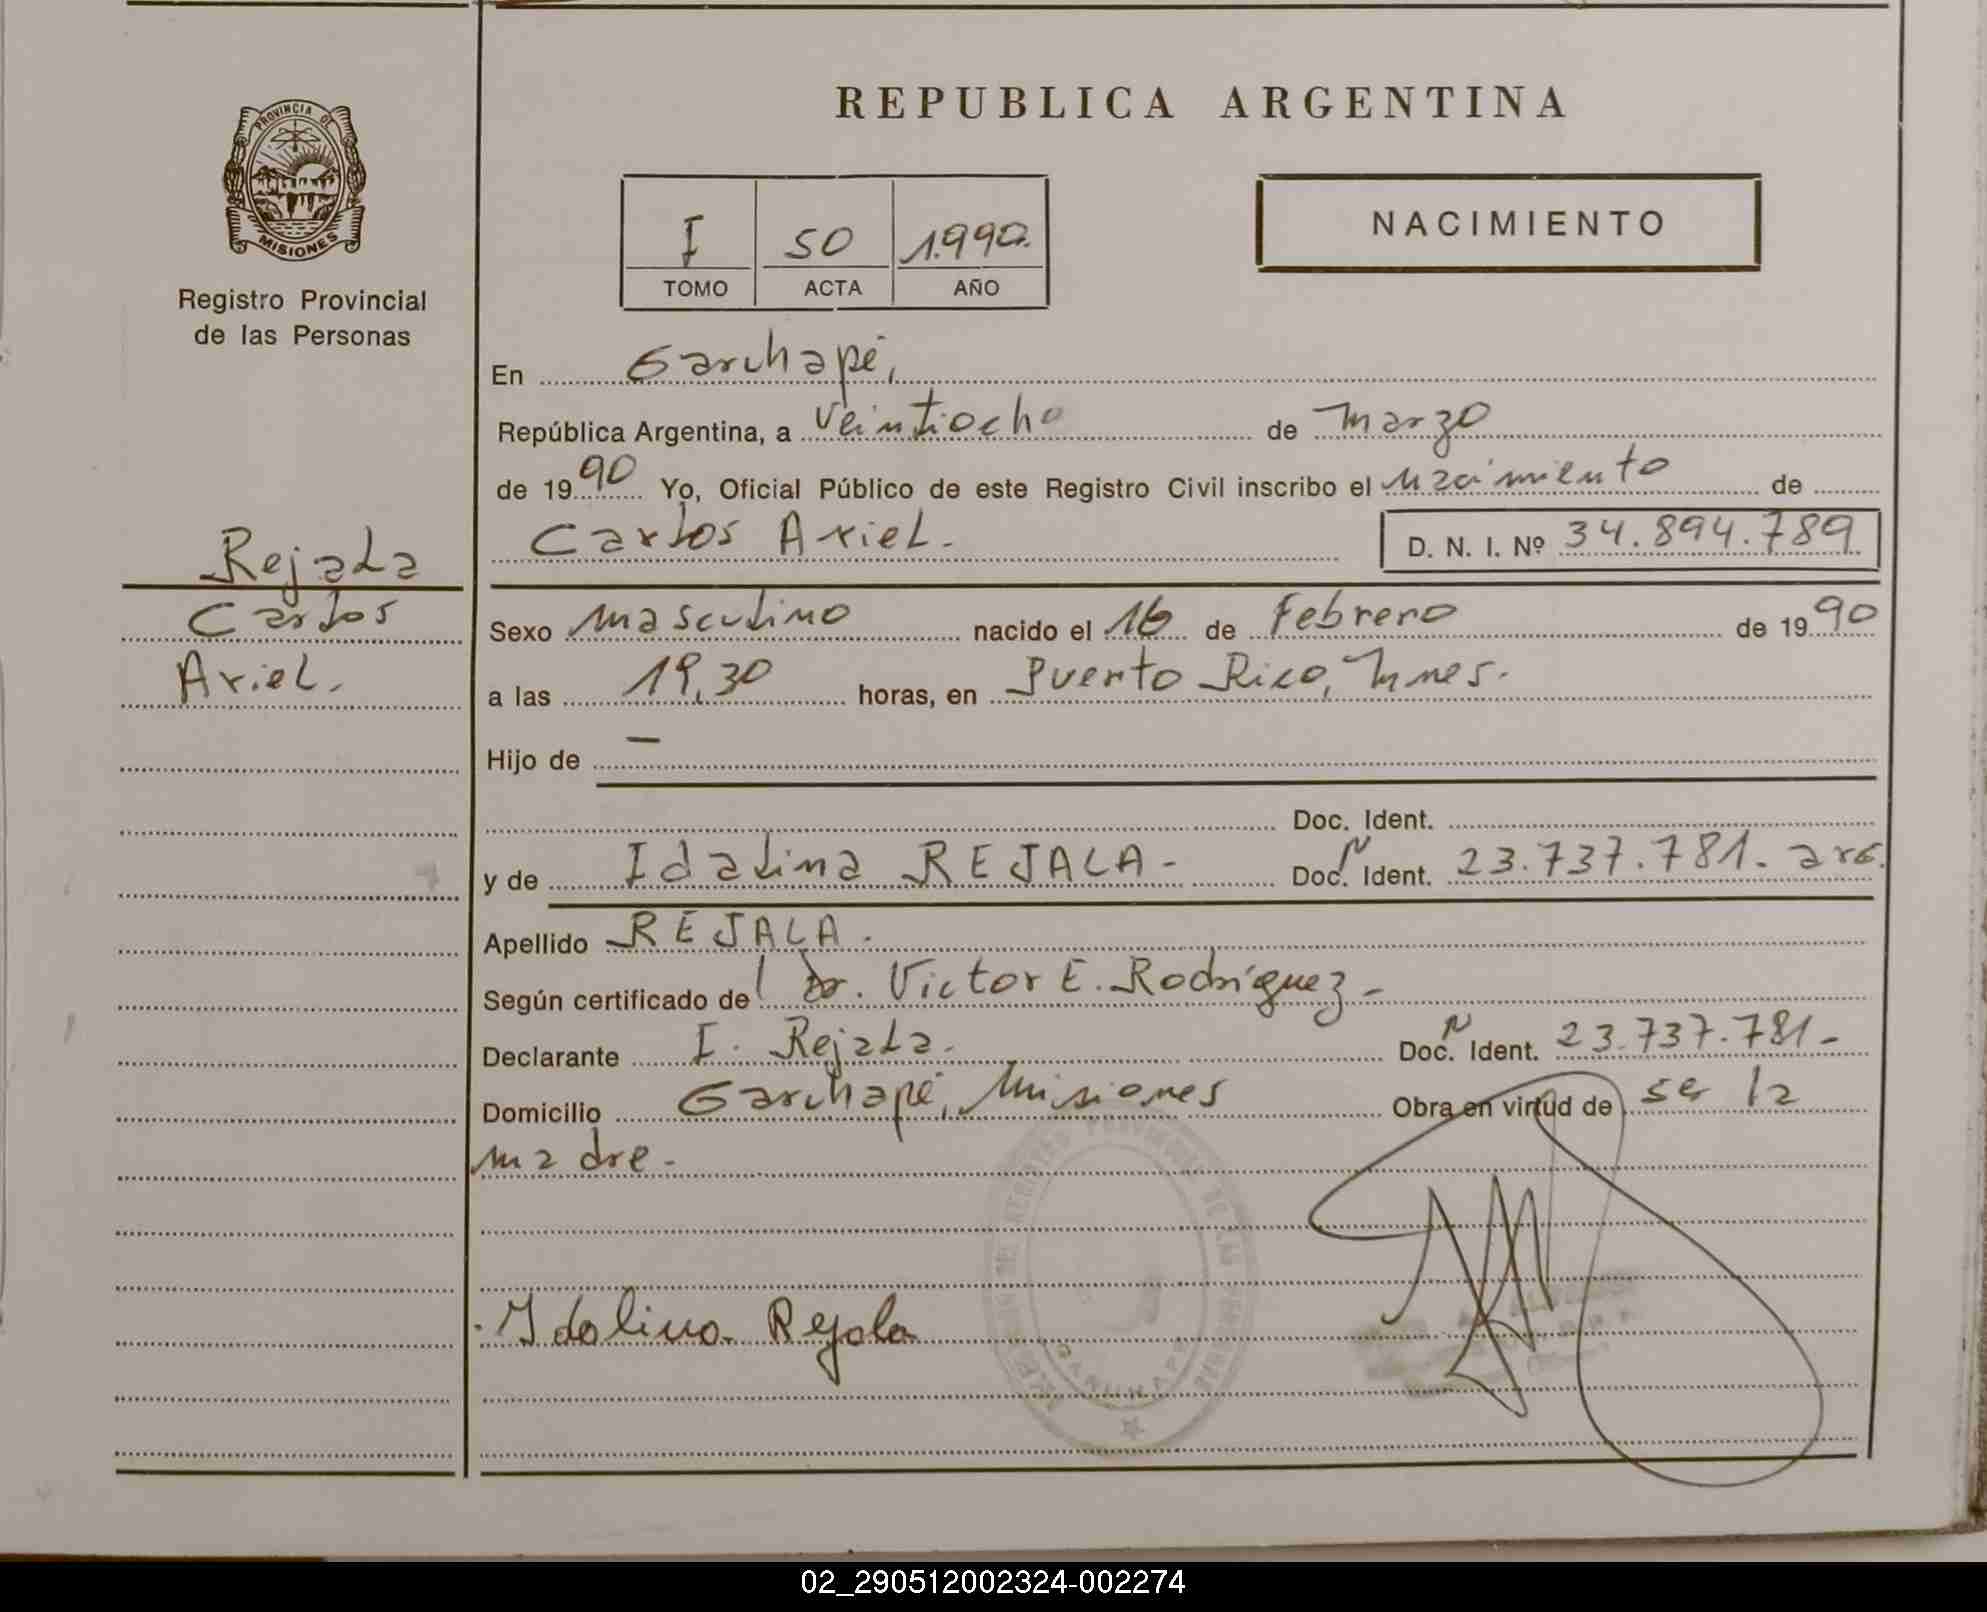 REPUBLICA ARGENTINA
PROVINCIA DE
MISIONES
Registro Provincial
de las Personas
I 50 1.990.
TOMO ACTA AÑO
NACIMIENTO
En Garuhapé,
República Argentina, a Veintiocho de marzo
de 1990 Yo, Oficial Público de este Registro Civil inscribo el nacimiento de
Carlos Ariel. D. N. I. Nº 34.894.789
Rejala
Carlos
Ariel.
Sexo masculino nacido el 16 de Febrero de 1990
a las 19,30 horas, en Puerto Rico, Mnes.
Hijo de —
Doc. Ident.
y de Idalina REJALA- Doc. N Ident. 23.737.781- arg.
Apellido REJALA.
Según certificado del Dr. Victor E. Rodríguez-
Declarante I. Rejala. Doc. N Ident. 23.737.781-
Domicilio Garuhapé, Misiones Obra en virtud de ser la
madre-
Idalina Rejala
GARUHAPE
02_290512002324-002274